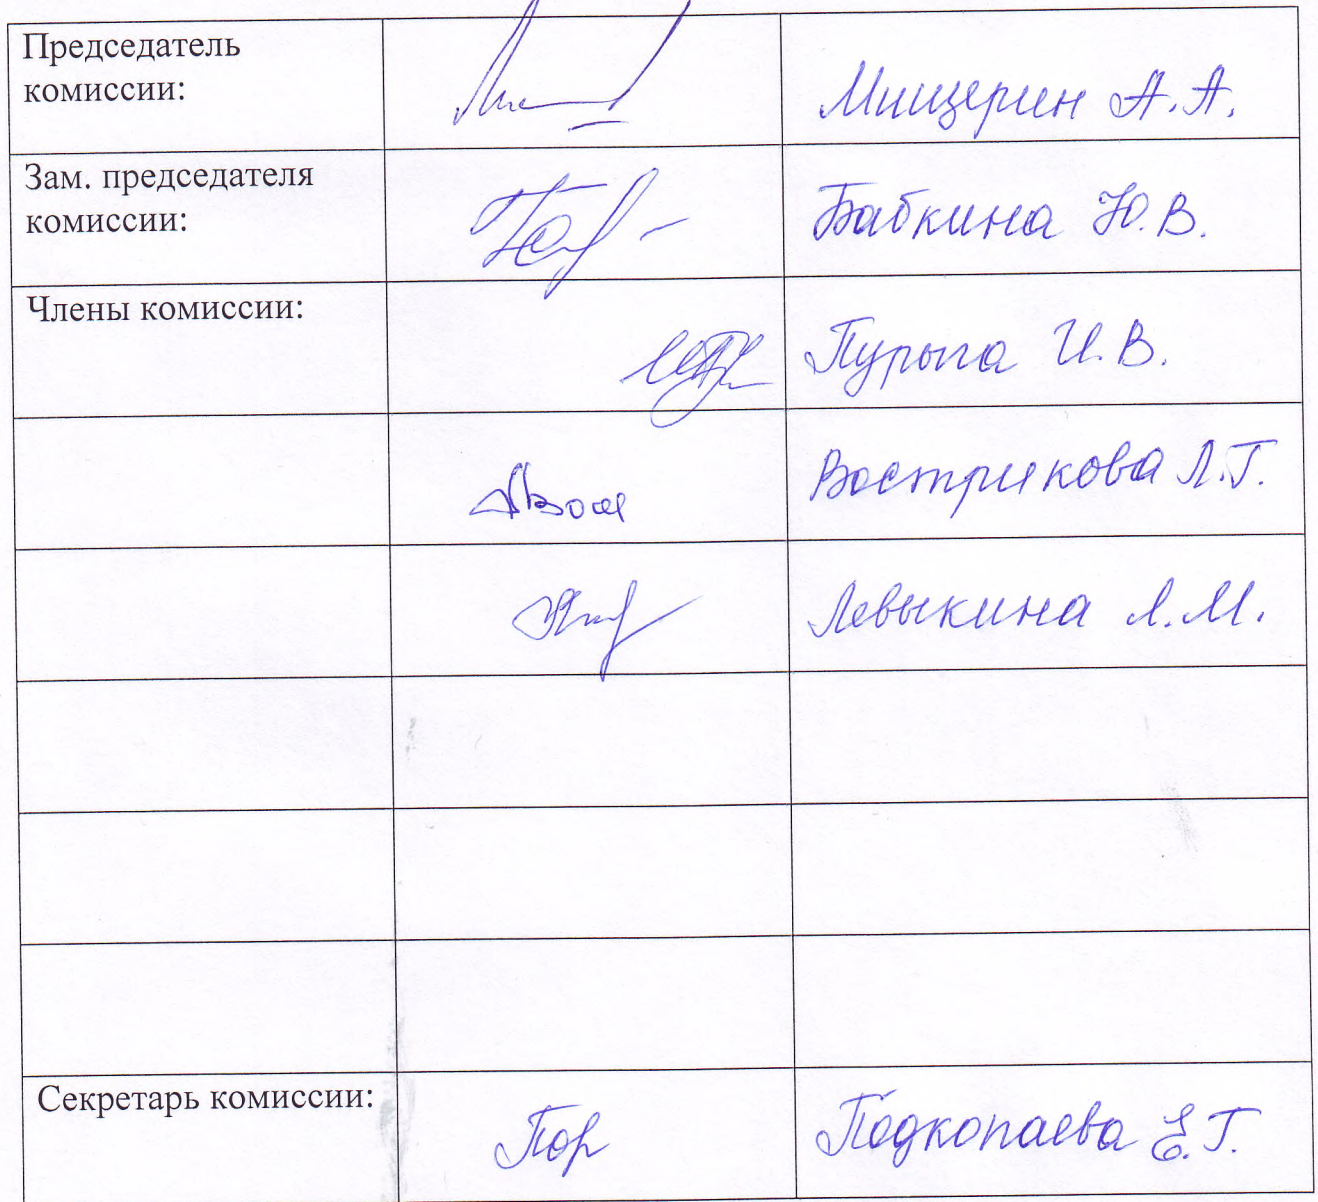 Председатель
комиссии:
Мищерин А.А.
Зам. председателя
комиссии:
Бабкина Ю.В.
Члены комиссии:
Пурыга И.В.
Вострикова Л.Г.
Левыкина Л.М.
Секретарь комиссии:
Подкопаева Е.Г.